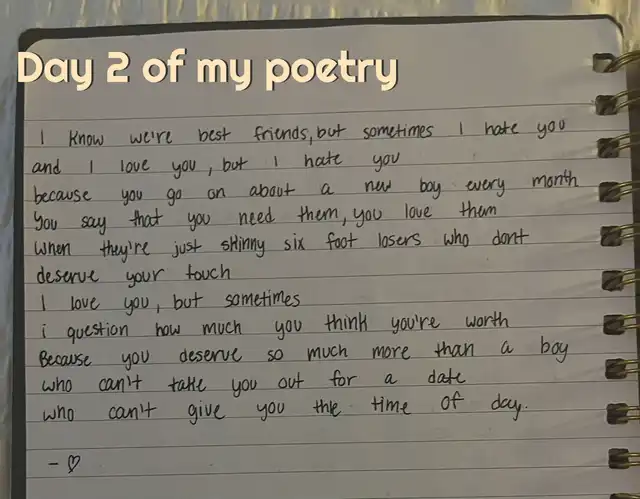 Day 2 of my poetry
I know we're best friends, but sometimes I hate you
and I love you, but I hate you
because you go on about a new boy every month
You say that you need them, you love them
When they're just skinny six foot losers who dont
deserve your touch
I love you, but sometimes
i question how much you think you're worth
Because you deserve so much more than a boy
who can't take you out for a date
who can't give you the time of day.
- ♡